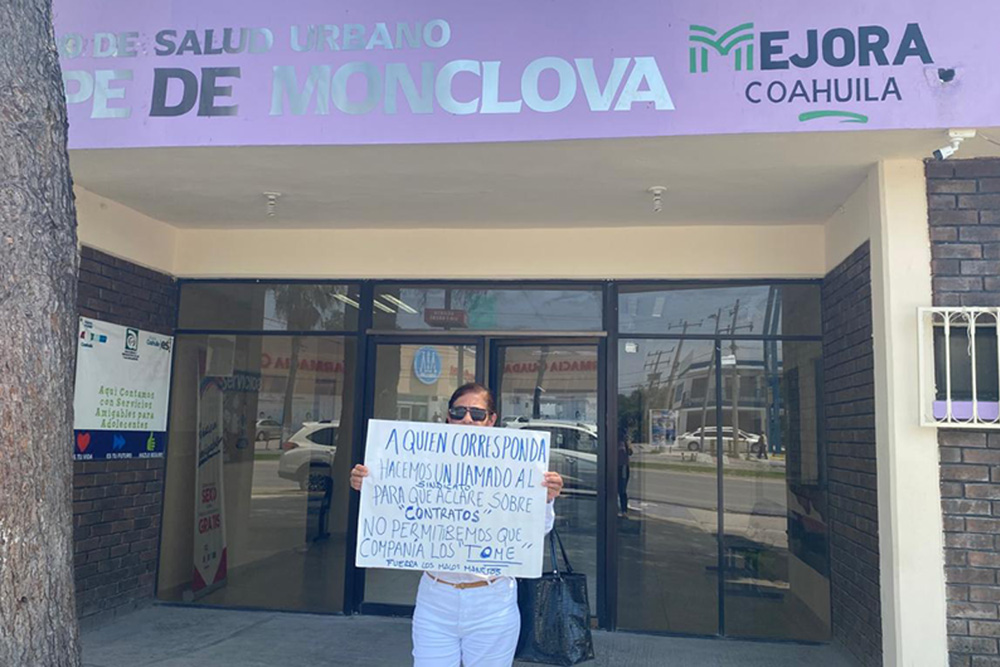 DE SALUD URBANO
PE DE MONCLOVA
MEJORA
COAHUILA
Aquí Contamos
con Servicios
Amigables para
Adolescentes
TU VIDA
ES TU FUTURO
HAZLO YES!
GRATIS
A QUIEN CORRESPONDA
HACEMOS UN LLAMADO AL
SINDICATO
PARA QUE ACLARE SOBRE
"CONTRATOS"
NO PERMITIREMOS QUE
COMPAÑIA LOS "TOME"
FUERRA LOS MALOS MANEJOS